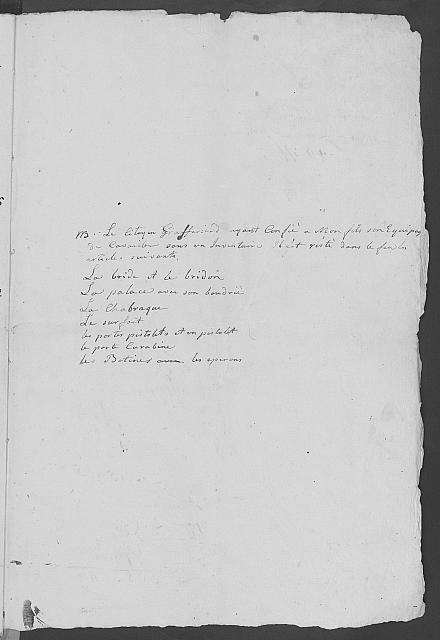 NB. Le Citoyen ayant Confié a Mon fils son Equipage
de Cavalier sous un Inventaire Il est resté dans le feu les
articles suivants
La bride et le bridon
La palace avec son baudrié
La Chabraque
Le surfait
les portes pistolets et un pistolet
le porte Carabine
les Botines avec les eperons